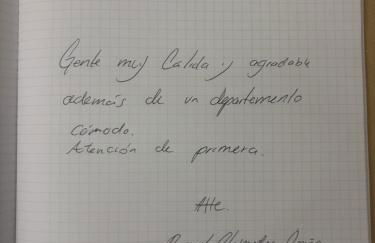 Gente muy Calida y agradable
además de un departamento
cómodo.
Atención de primera.
Atte.